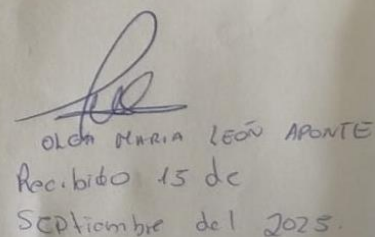 OLGA MARIA LEÓN APONTE
Recibido 15 de
Septiembre del 2025.